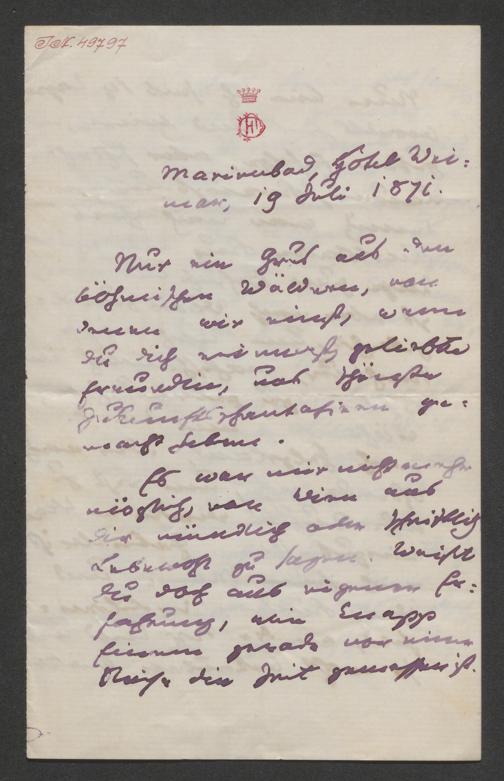 I.N. 49797
Marienbad, Hôtel Wei=
mar, 19 Juli 1871.
Nur ein Gruß aus den
böhmischen Wäldern, von
denen wir einst, wenn
du dich erinnerst, geliebte
Freundin, uns schönste
Zukunftsphantasieen ge=
macht haben.
Es war mir nicht mehr
möglich, von Wien aus
dir mündlich oder schriftlich
Lebewohl zu sagen. Weißt
du doch aus eigener Er=
fahrung, wie knapp
Einem gerade vor einer
Reise die Zeit gemessen ist.